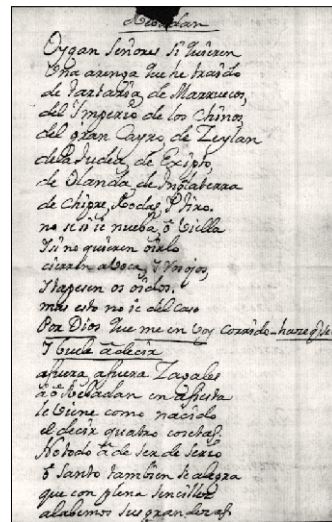 Oygan Señores si quieren
Una arenga que he traido
de tartaria, de Marruecos,
del Imperio de los Chinos,
del gran Cayro, de Zeylan
de la Judea, de Exipto,
de Olanda, de Inglaterra
de Chipre, Rodas, y Tiro.
no se si se nueba, o biella
I si no quieren oirlo
cierren aboca, I los ojos,
I tapesen os oidos.
mas esto no ie del caso
Por Dios que me en boy corrido hace q.e se
I buelbe a decir
ahura, ahura Zagales
a o en afuta
le biene como nacido
el decir quatro cosetas,
No todo a de ser de serio
o Santo tambien se alegra
que con plena sencillez
alabemos sus grandezas